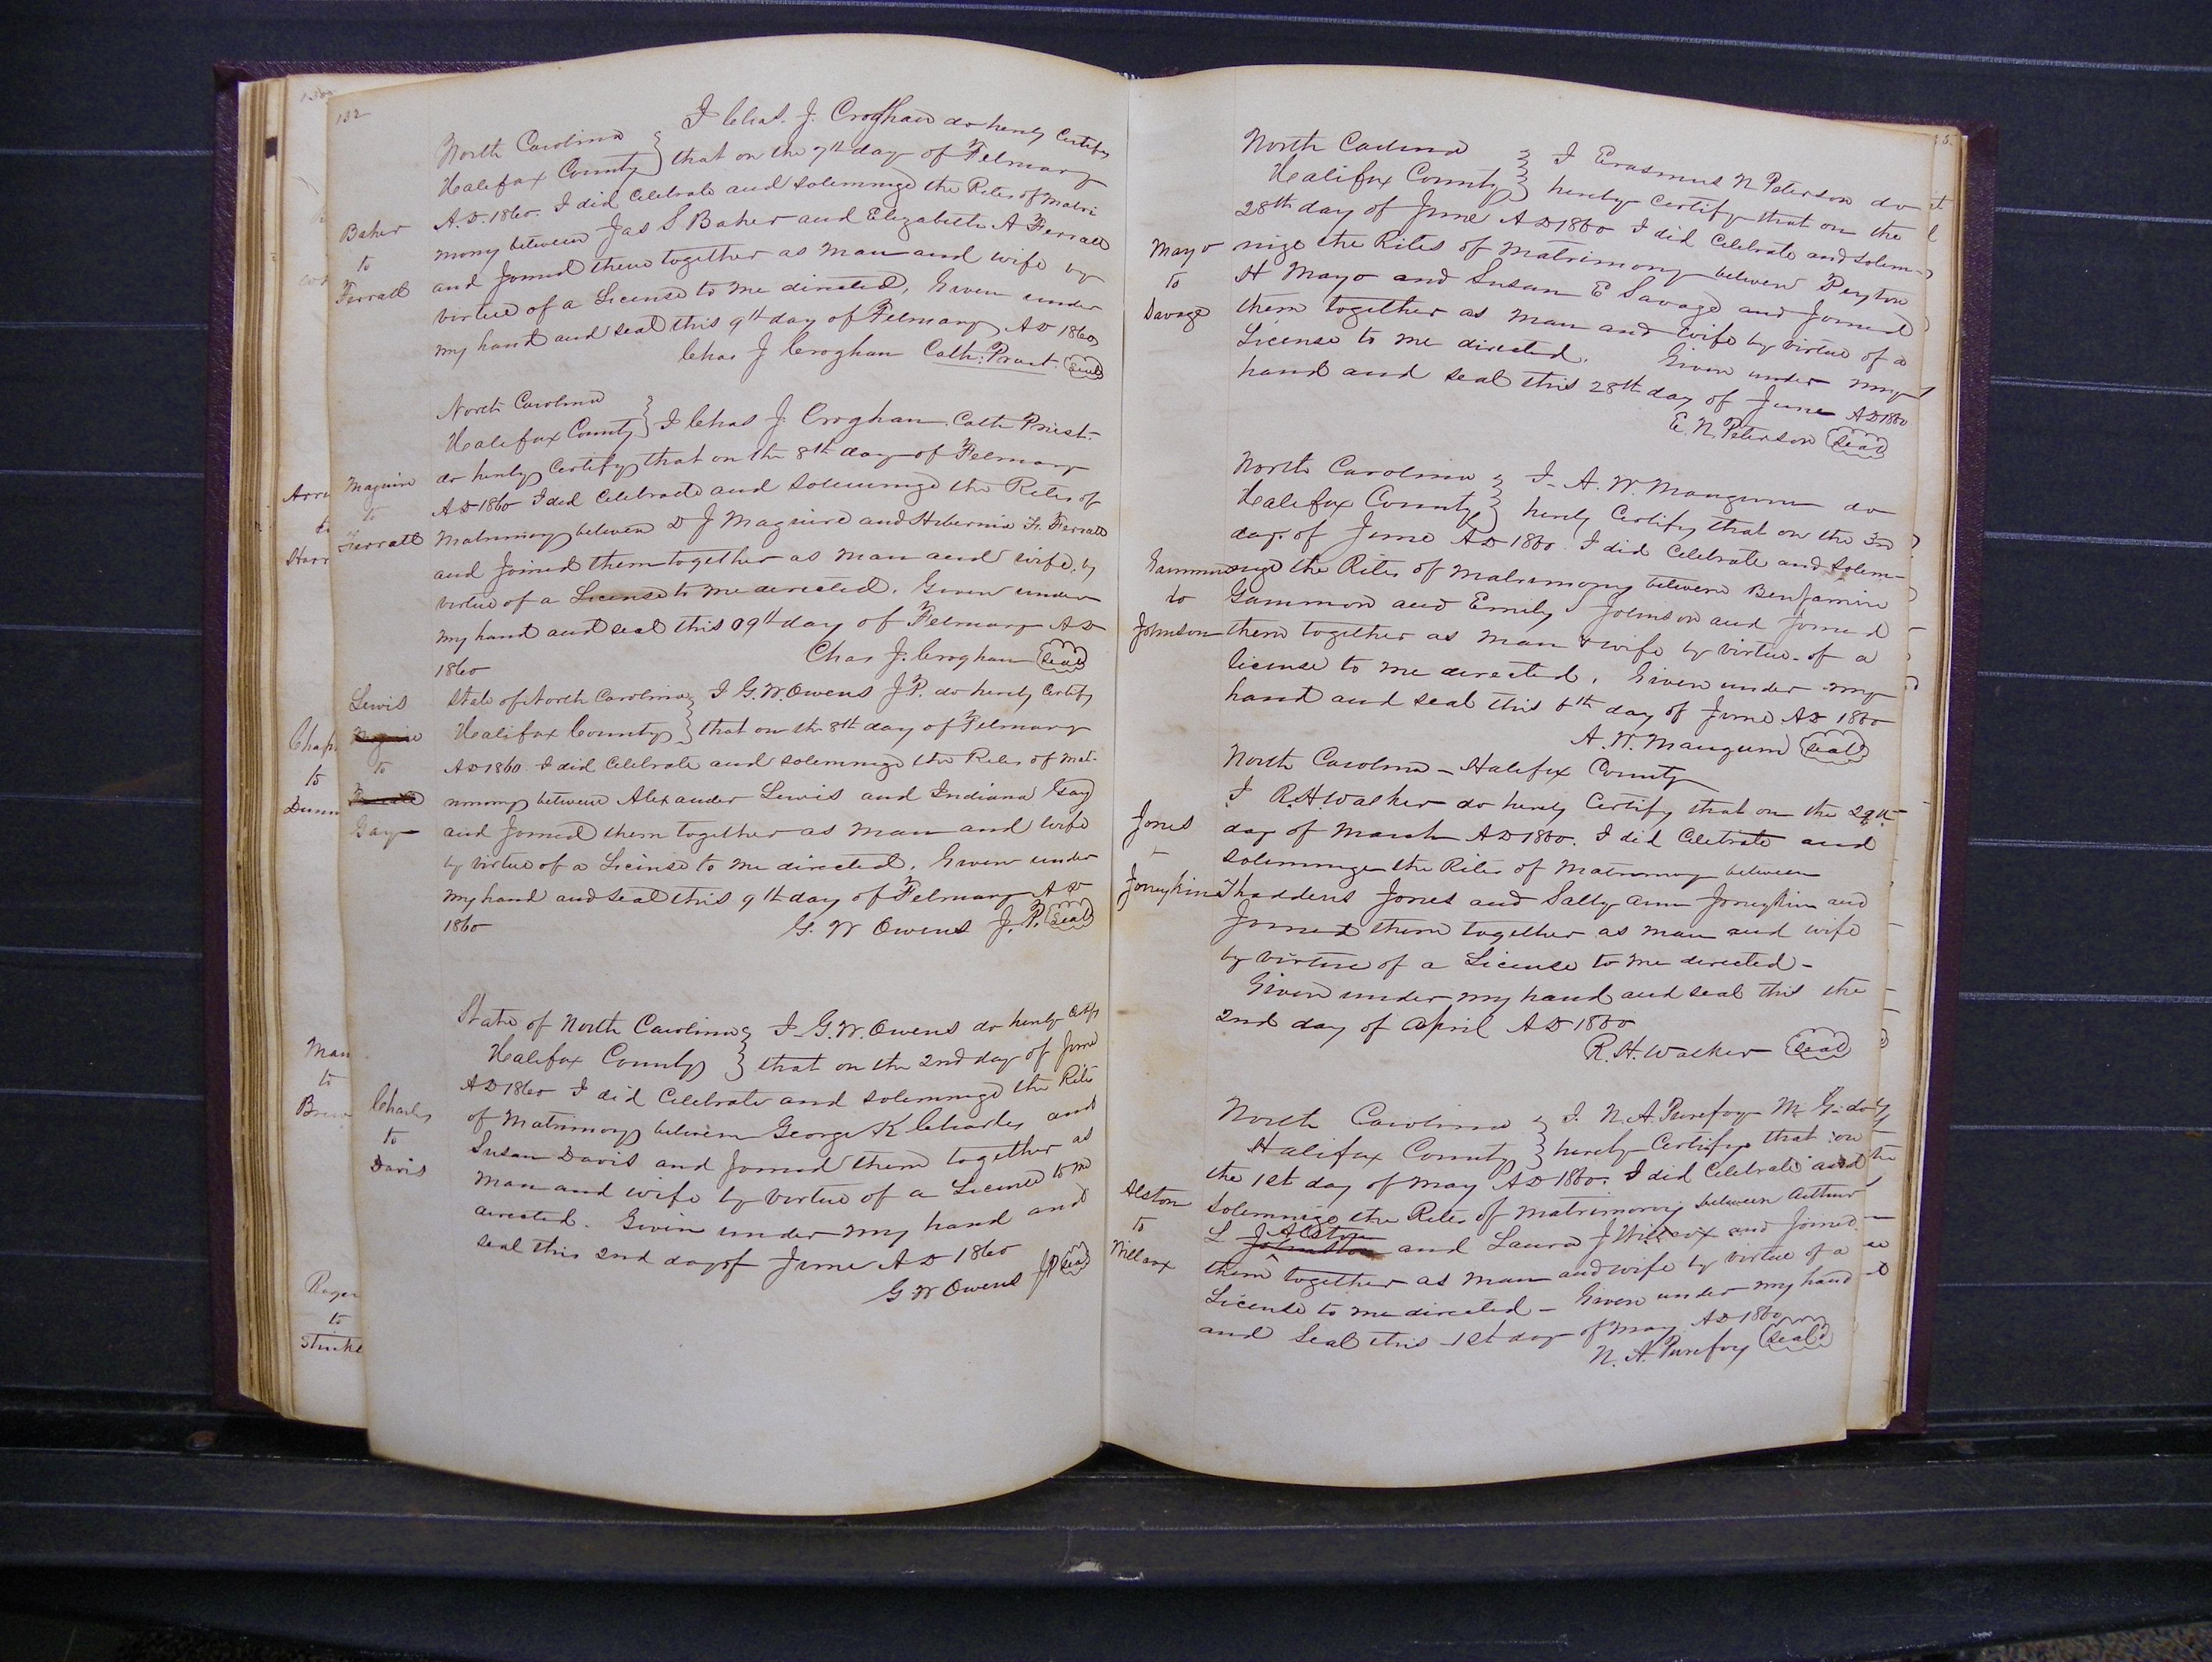 132
North Carolina } I Chas. J. Croghan do hereby Certify
Halifax County } that on the 7th day of February
A.D. 1860. I did Celebrate and Solemnize the Rites of Matri
mony between Jas S Baker and Elizabeth A Ferrall
and Joined them together as man and wife by
virtue of a License to me directed, Given under
my hand and seal this 9th day of February AD 1860
Chas J Croghan Cath: Priest. Seal
Baker
to
Ferrall
North Carolina
Halifax County } I Chas J. Croghan. Cath Priest.
do hereby Certify that on the 8th day of February
AD 1860 I did Celebrate and Solemnize the Rites of
Matrimony between D J Maguire and Hibernia F. Ferrall
and Joined them together as man and wife, by
virtue of a License to me directed. Given under
my hand and seal this 9th day of February AD
1860 Chas J. Croghan Seal
Maguire
to
Ferrall
State of North Carolina } I G. W. Owens J.P. do hereby Certify
Halifax County } that on the 8th day of February
AD 1860 I did Celebrate and Solemnize the Rites of Mat-
rimony between Alexander Lewis and Indiana Gay
and Joined them together as man and wife
by virtue of a License to me directed. Given under
my hand and seal this 9th day of February AD
1860 G. W Owens J. P. Seal
Lewis
Maguire
to
Ferrall
Gay
State of North Carolina } I G. W. Owens do hereby Certify
Halifax County } that on the 2nd day of June
AD 1860 I did Celebrate and solemnize the Rites
of Matrimony between George K Charles and
Susan Davis and Joined them together as
man and wife by virtue of a License to me
directed. Given under my hand and
seal this 2nd day of June AD 1860
G W Owens JP Seal
Charles
to
Davis
Arr
to
Harr
Chap
to
Dunn
Man
to
Brew
Roger
to
Stickl
North Carolina } I Erasmus N Peterson do
Halifax County } hereby Certify that on the
28th day of June AD 1860 I did Celebrate and Solem-
nize the Rites of Matrimony between Peyton
H Mayo and Susan E Savage and Joined
them together as man and wife by virtue of a
License to me directed. Given under my
hand and seal this 28th day of June AD 1860
E. N. Peterson Seal
Mayo
to
Savage
North Carolina } I. A. W. Mangum do
Halifax County } hereby Certify that on the
day of June AD 1860. I did Celebrate and Solem-
nize the Rites of Matrimony between Benjamin
Gammon and Emily Johnson and Joined
them together as man & wife by virtue of a
license to me directed. Given under my
hand and seal this 6th day of June AD 1860
A. W. Mangum Seal
Gammon
to
Johnson
North Carolina - Halifax County
I R. H. Walker do hereby Certify that on the 29th
day of March AD 1860. I did Celebrate and
solemnize the Rites of Matrimony between
Thaddeus Jones and Sally Ann Joneykin and
Joined them together as man and wife
by virtue of a License to me directed -
Given under my hand and seal this the
2nd day of April AD 1860
R. H. Walker Seal
Jones
Joneykin
North Carolina } I. N. A. Purefoy M. G. do
Halifax County } hereby Certify that on
the 1st day of May AD 1860. I did Celebrate and
Solemnize the Rites of Matrimony between Arthur
Alston
L Johnston and Laura J Willcox and Joined
them together as man and wife by virtue of a
License to me directed - Given under my hand
and Seal this 1st day of May AD 1860
N. A. Purefoy Seal
Alston
to
Willcox